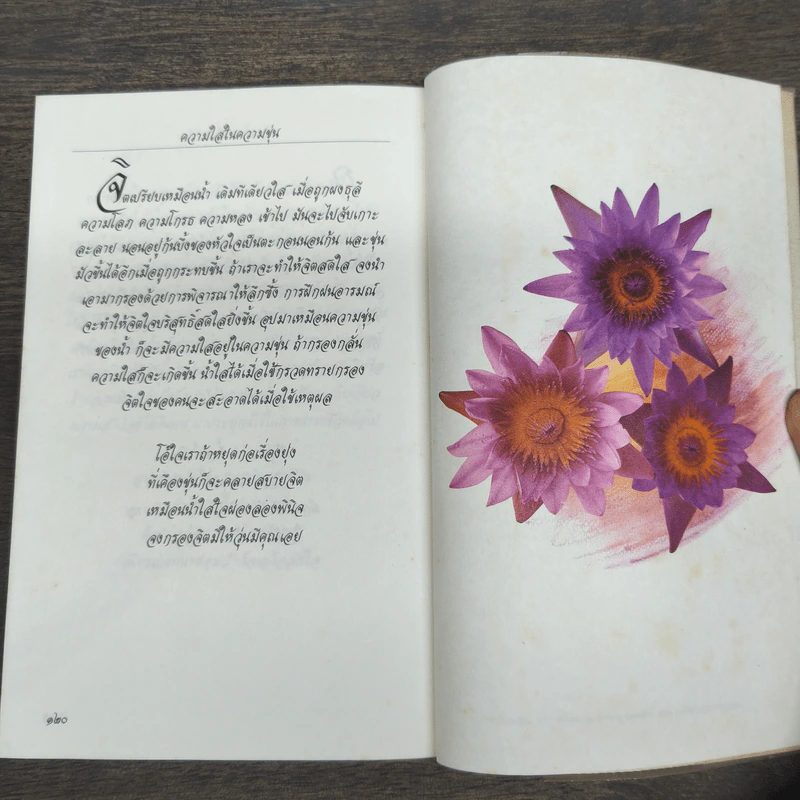 ความใสในความขุ่น
จิตเปรียบเหมือนน้ำ เดิมทีเดียวใส เมื่อถูกผงธุลี
ความโลภ ความโกรธ ความหลง เข้าไป มันจะไปจับเกาะ
ละลาย นอนอยู่ก้นบึ้งของหัวใจเป็นตะกอนนอนก้น และขุ่น
มัวขึ้นได้อีกเมื่อถูกกระทบขึ้น ถ้าเราจะทำให้จิตสดใส จงนำ
เอามากรองด้วยการพิจารณาให้ลึกซึ้ง การฝึกฝนอารมณ์
จะทำให้จิตใจบริสุทธิ์สดใสยิ่งขึ้น อุปมาเหมือนความขุ่น
ของน้ำ ก็จะมีความใสอยู่ในความขุ่น ถ้ากรองกลั่น
ความใสก็จะเกิดขึ้น น้ำใสได้เมื่อใช้กรวดทรายกรอง
จิตใจของคนจะสะอาดได้เมื่อใช้เหตุผล
โอ้ใจเราถ้าหยุดก่อเรื่องยุ่ง
ที่เคืองขุ่นก็จะคลายสบายจิต
เหมือนน้ำใสใจผ่องลองพินิจ
จงกรองจิตมิให้วุ่นมีคุณเอย
๑๒๐